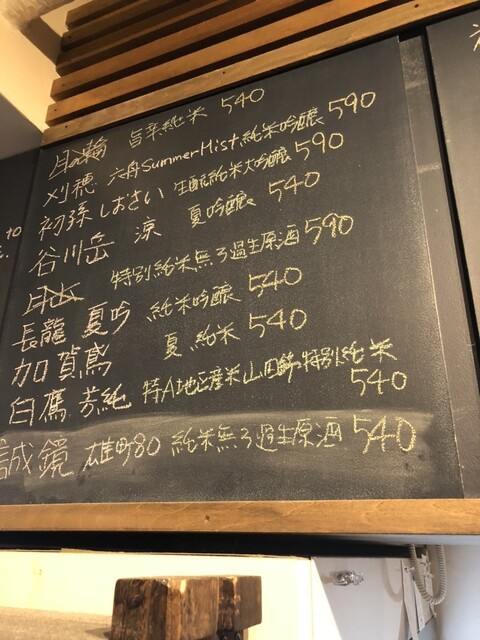 日輪 旨辛純米 540
刈穂 六舟 Summer Mist 純米吟醸 590
初孫 しおさい 生酛純米大吟醸 590
谷川岳 涼 夏吟醸 540
特別純米無ろ過生原酒 590
長龍 夏吟 純米吟醸 540
加賀鳶 夏純米 540
白鷹 芳純 特A地区産米山田錦特別純米 540
誠鏡 雄町80 純米無ろ過生原酒 540
to